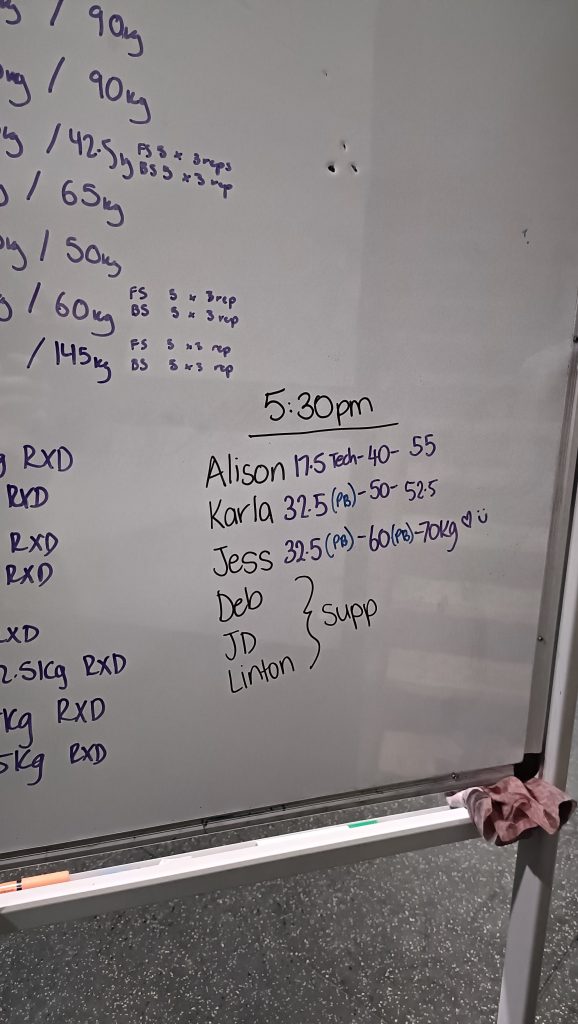 / 90kg
/ 90kg
kg / 42.5kg FS 5 x 3 reps
BS 5 x 3 rep
/ 65kg
/ 50kg
/ 60kg FS 5 x 3 rep
BS 5 x 3 rep
/ 145kg FS 5 x 3 rep
BS 5 x 3 rep
5:30pm
Alison 17.5 Tech - 40 - 55
Karla 32.5 (PB) - 50 - 52.5
Jess 32.5 (PB) - 60 (PB) - 70kg
Deb
JD } Supp
Linton
RXD
RXD
RXD
RXD
RXD
2.5kg RXD
kg RXD
5kg RXD